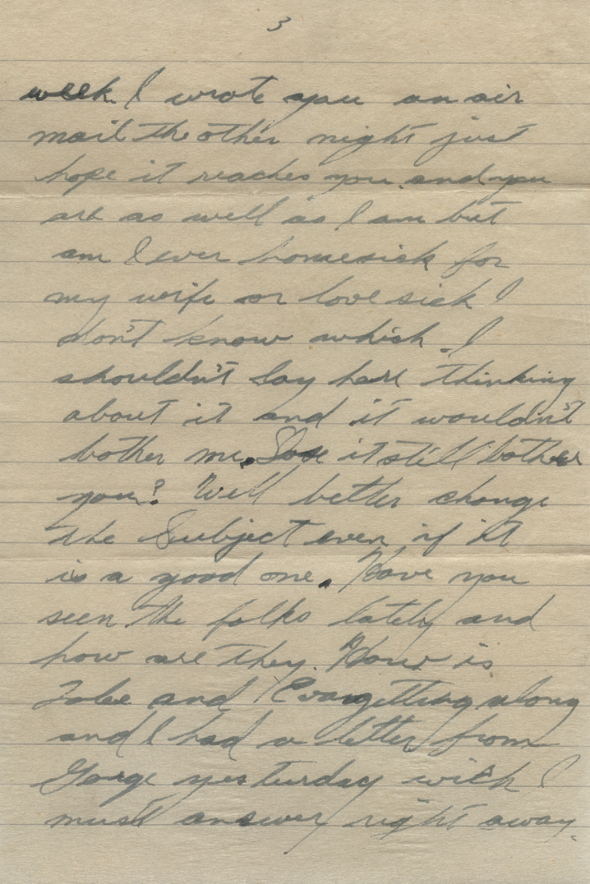 3
week. I wrote you an air
mail the other night just
hope it reaches you and you
are as well as I am but
am I ever homesick for
my wife or love sick I
don't know which. I
shouldn't lay here thinking
about it and it wouldn't
bother me. Dose it still bother
you? Well better change
the Subject even if it
is a good one. Have you
seen the folks lately and
how are they. How is
and getting along
and I had a letter from
Gorge yesturday wich I
must answer right away.